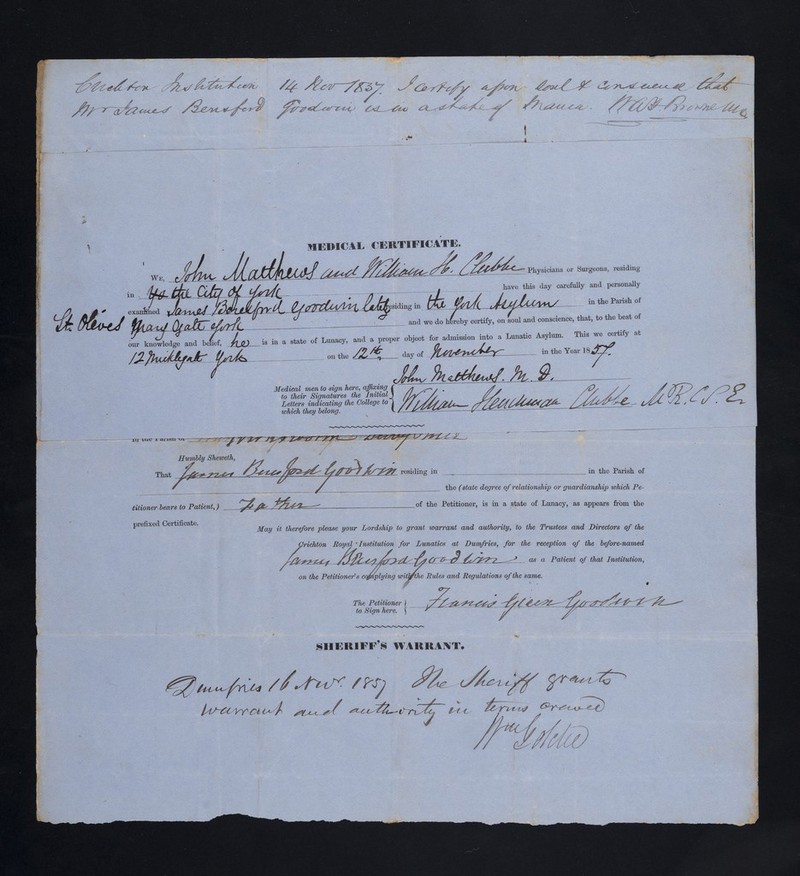 Crichton Institution 14 Nov 1857. I certify upon soul & conscience that
Mr James Beresford Goodwin is in a state of Mania. W A F Browne MD
MEDICAL CERTIFICATE.
We, John Matthews and William H. Clubbe Physicians or Surgeons, residing
in the City of York have this day carefully and personally
examined James Beresford Goodwin lately residing in the York Asylum in the Parish of
St. Olaves Mary Gate York and we do hereby certify, on soul and conscience, that, to the best of
our knowledge and belief, he is in a state of Lunacy, and a proper object for admission into a Lunatic Asylum. This we certify at
12 Micklegate York on the 12th. day of November in the Year 1857.
Medical men to sign here, affixing
to their Signatures the Initial
Letters indicating the College to
which they belong.
John Matthews. M. D.
William Henchman Clubbe M.R.C.S.E.
in the Parish of
Humbly Sheweth,
That James Beresford Goodwin residing in in the Parish of
the (state degree of relationship or guardianship which Pe-
titioner bears to Patient,) Father of the Petitioner, is in a state of Lunacy, as appears from the
prefixed Certificate.
May it therefore please your Lordship to grant warrant and authority, to the Trustees and Directors of the
Crichton Royal Institution for Lunatics at Dumfries, for the reception of the before-named
James Beresford Goodwin as a Patient of that Institution,
on the Petitioner's complying with the Rules and Regulations of the same.
The Petitioner
to Sign here.
Francis Green Goodwin
SHERIFF'S WARRANT.
Dumfries 16 Novr. 1857 The Sheriff grants
warrant and authority in terms craved
Wm